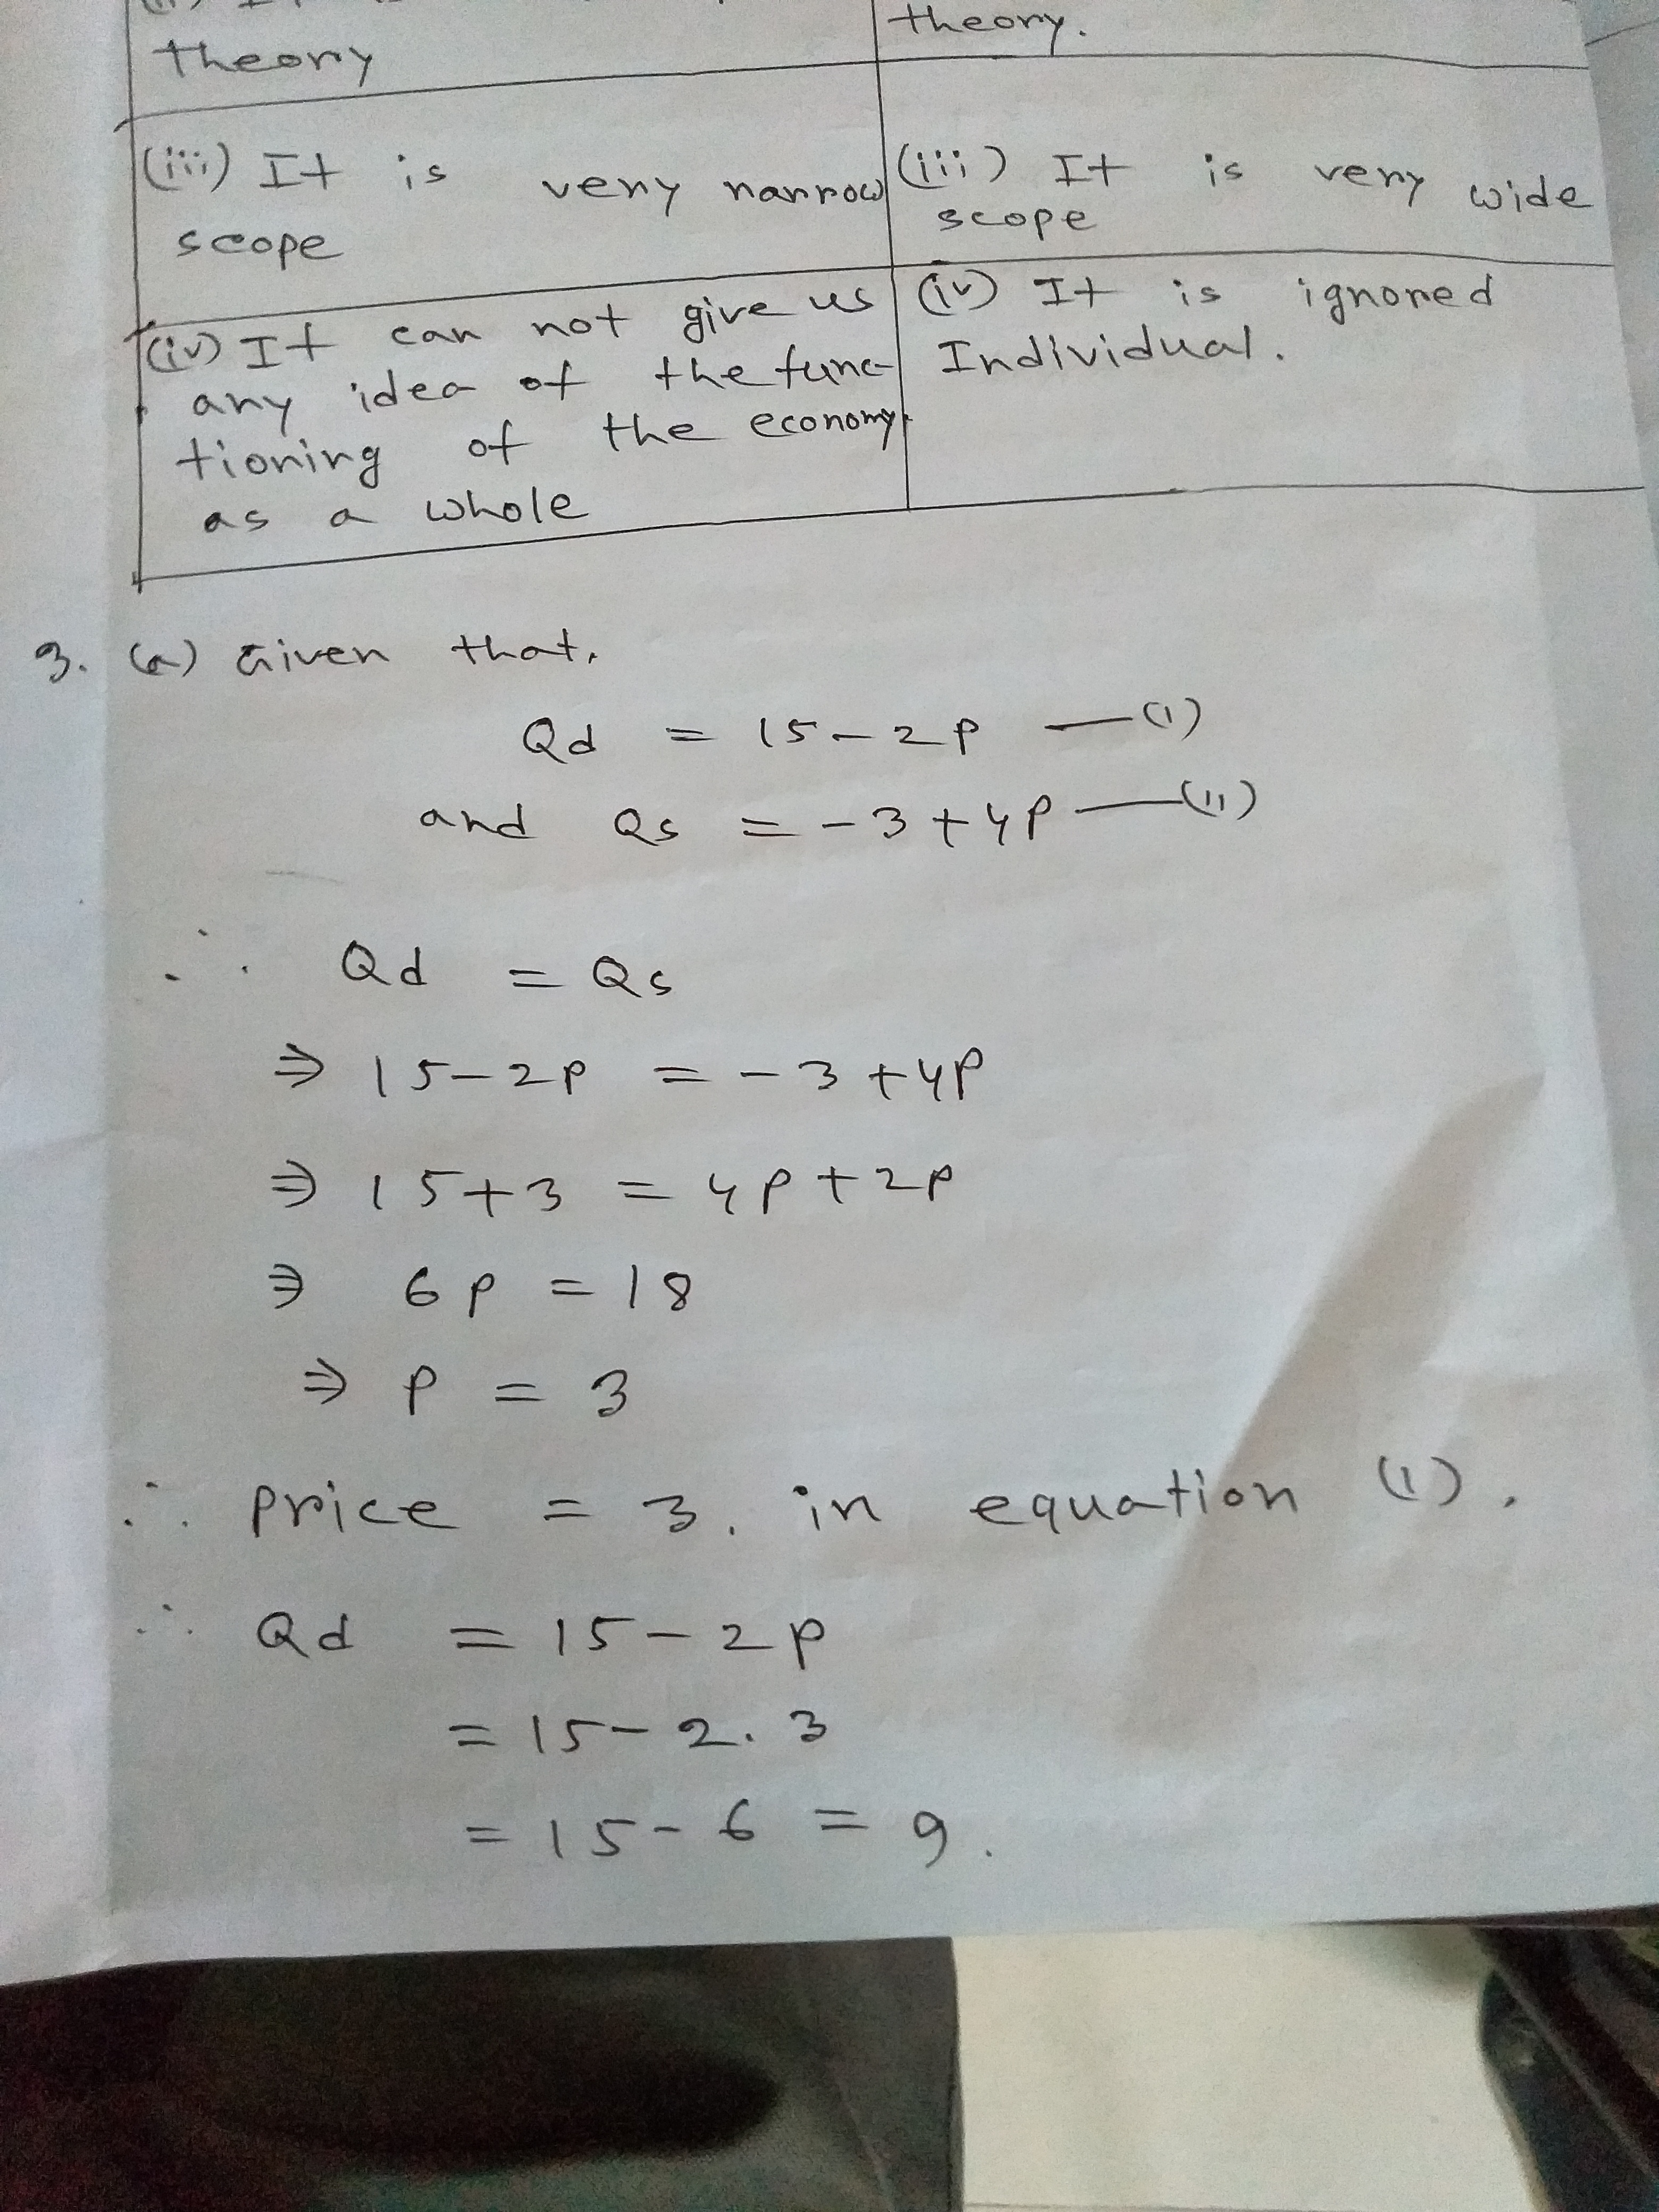 theory
theory.
(iii) It is very narrow
scope
(iii) It is very wide
scope
(iv) It can not give us
any idea of the func-
tioning of the economy.
as a whole
(iv) It is ignored
Individual.
3. (a) Given that,
Qd = 15-2P —(i)
and Qs = -3+4P —(ii)
∴ Qd = Qs
⇒ 15-2P = -3+4P
⇒ 15+3 = 4P+2P
⇒ 6P = 18
⇒ P = 3
∴ Price = 3. in equation (i).
∴ Qd = 15-2P
= 15-2.3
= 15-6 = 9.